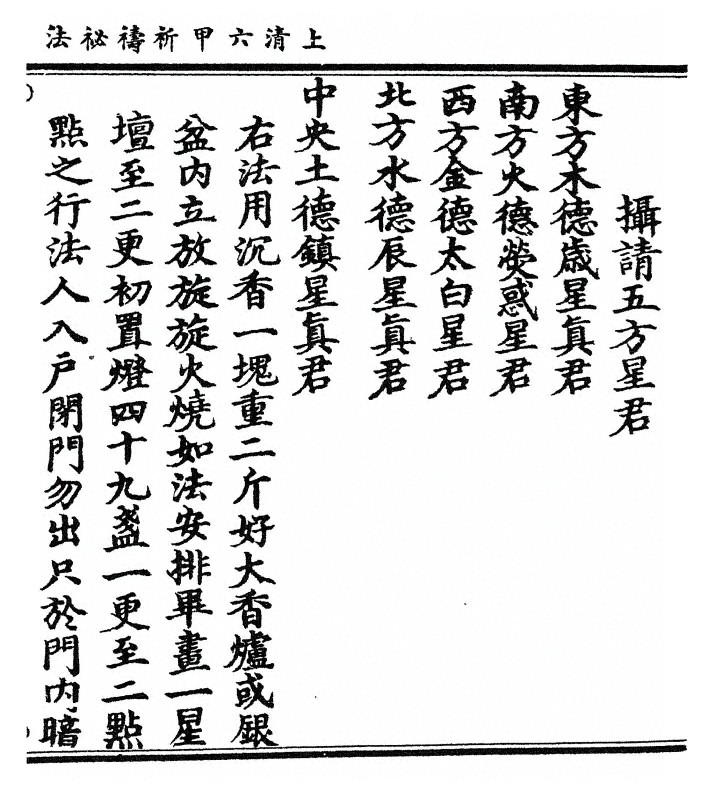 上清六甲祈禱祕法
攝請五方星君
東方木德歲星真君
南方火德熒惑星君
西方金德太白星君
北方水德辰星真君
中央土德鎮星真君
右法用沉香一塊重二斤好大香爐或銀
盆內立放旋旋火燒如法安排畢畫一星
壇至二更初置燈四十九盞一更至二點
點之行法人入戶閉門勿出只於門內暗